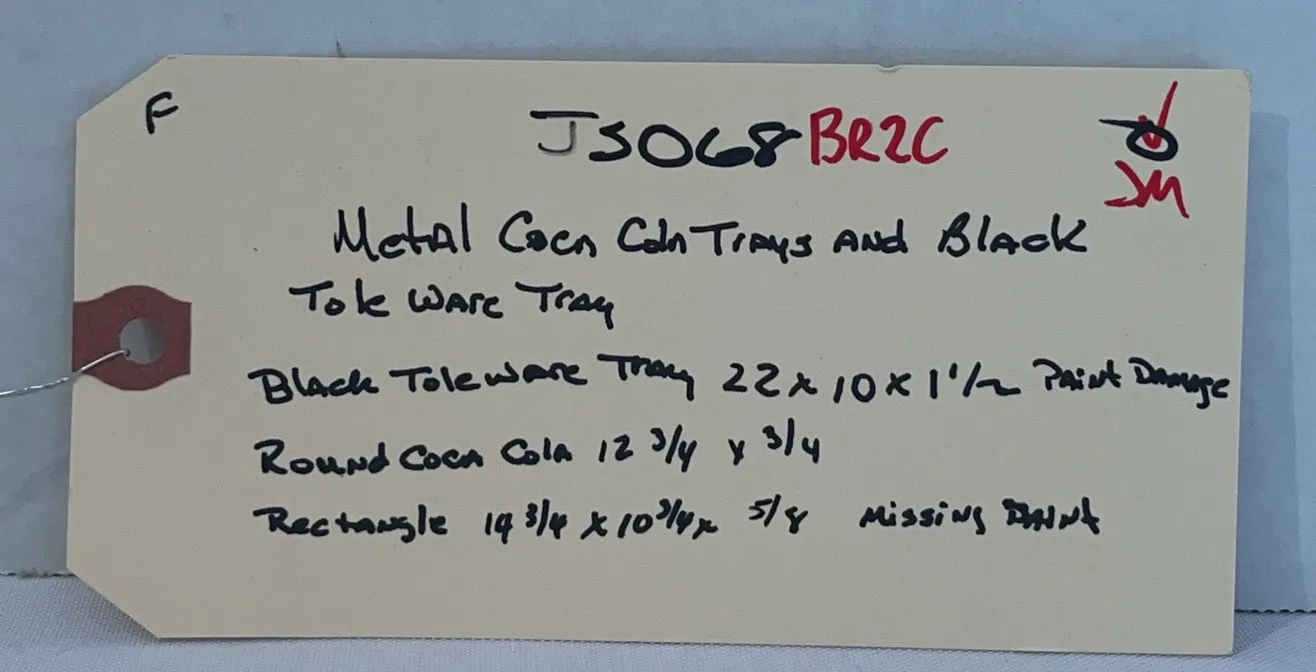 F
JS068 BR2C
JM
Metal Coca Cola Trays and Black
Tole Ware Tray
Black Tole Ware Tray 22 x 10 x 1 1/2 Paint Damage
Round Coca Cola 12 3/4 x 3/4
Rectangle 14 3/4 x 10 3/4 x 5/8 Missing Paint